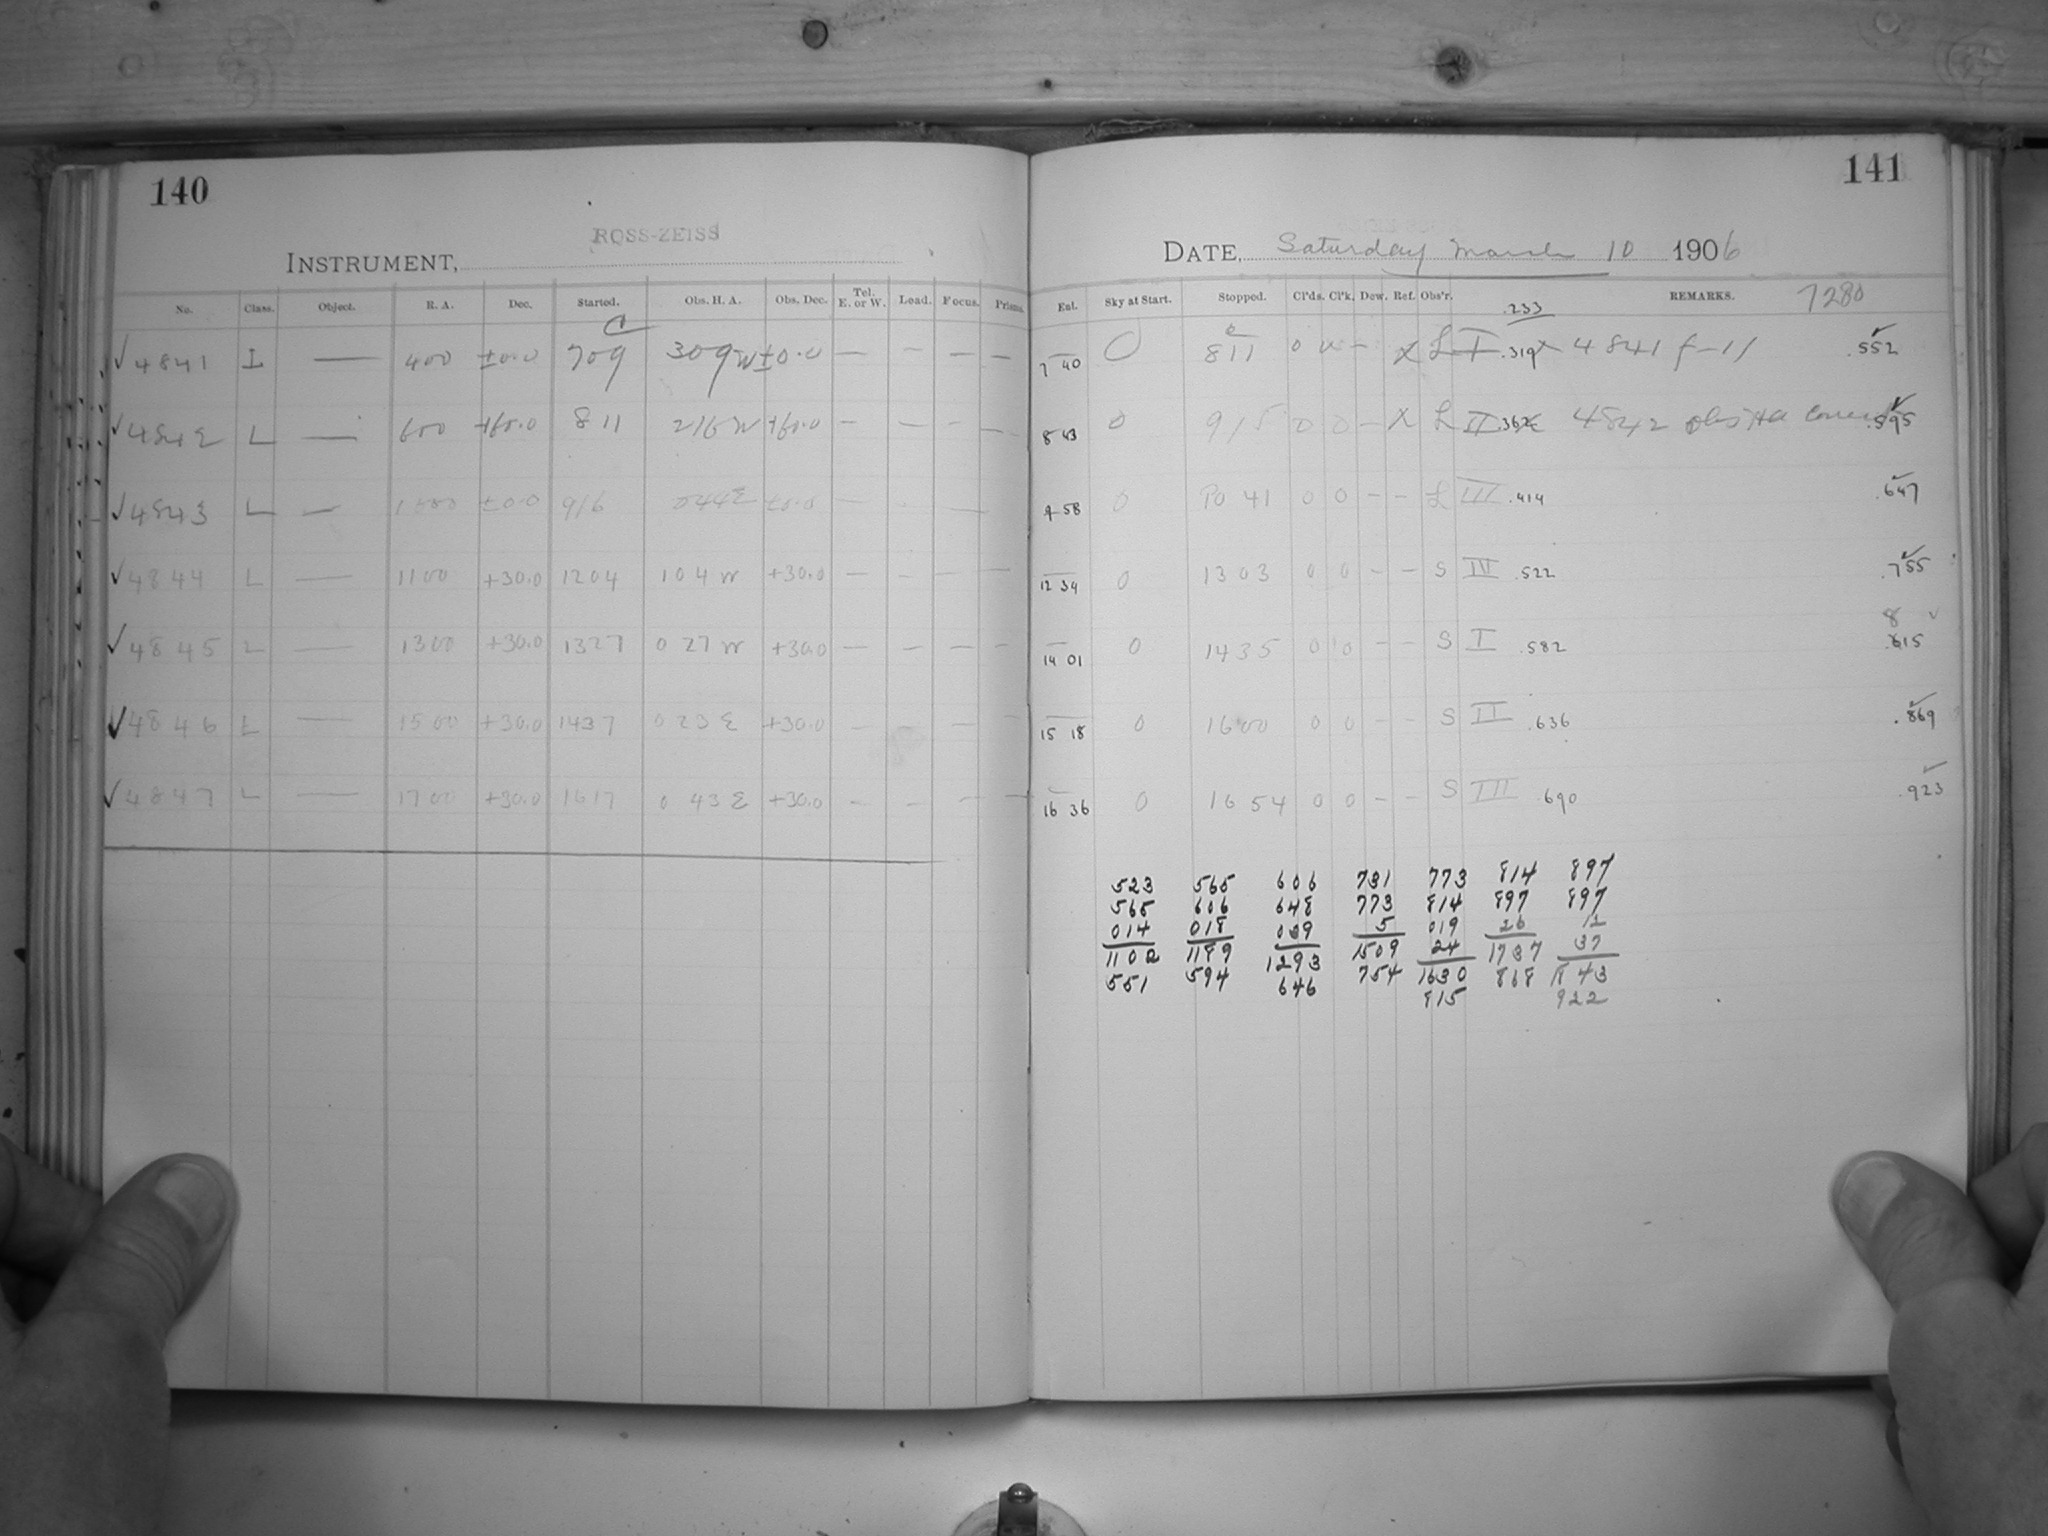 140
ROSS-ZEISS
INSTRUMENT,
No. Class. Object. R. A. Dec. Started. Obs. H. A. Obs. Dec. Tel. E. or W. Load. Focus. Prisms.
✓4841 L — 400 ±0.0 709 309 W ±0.0 — — — —
✓4842 L — 600 +60.0 811 216 W +60.0 — — — —
✓4843 L — ±0.0 916 ±0.0 — —
✓4844 L — 1100 +30.0 1204 104 W +30.0 — — — —
✓4845 L — 1300 +30.0 1327 0 27 W +30.0 — — — —
✓4846 L — 1500 +30.0 1437 0 23 E +30.0 — — — —
✓4847 L — 1700 +30.0 1617 0 43 E +30.0 — — — —
141
DATE, Saturday March 10 1906
Ent. Sky at Start. Stopped. Cl'ds. Cl'k. Dew. Ref. Obs'r. REMARKS. 7280
.233
7 40 0 811 0 — X L I .319 X 4841 f-11 .552
8 43 0 915 0 0 — X L II .362 X 4842 Obs HA .595
9 58 0 10 41 0 0 – – L III .414 .647
12 34 0 1303 0 0 – – S III .522 .755
8
14 01 0 1435 0 0 – – S I .582 .615
15 18 0 1600 0 0 – – S II .636 .869
16 36 0 1654 0 0 – – S III .690 .923
523 565 606 731 773 814 897
565 606 648 773 814 897 897
014 018 039 5 019 26 12
1102 1189 1293 1509 24 1737 37
551 594 646 754 1630 868 1843
815 922